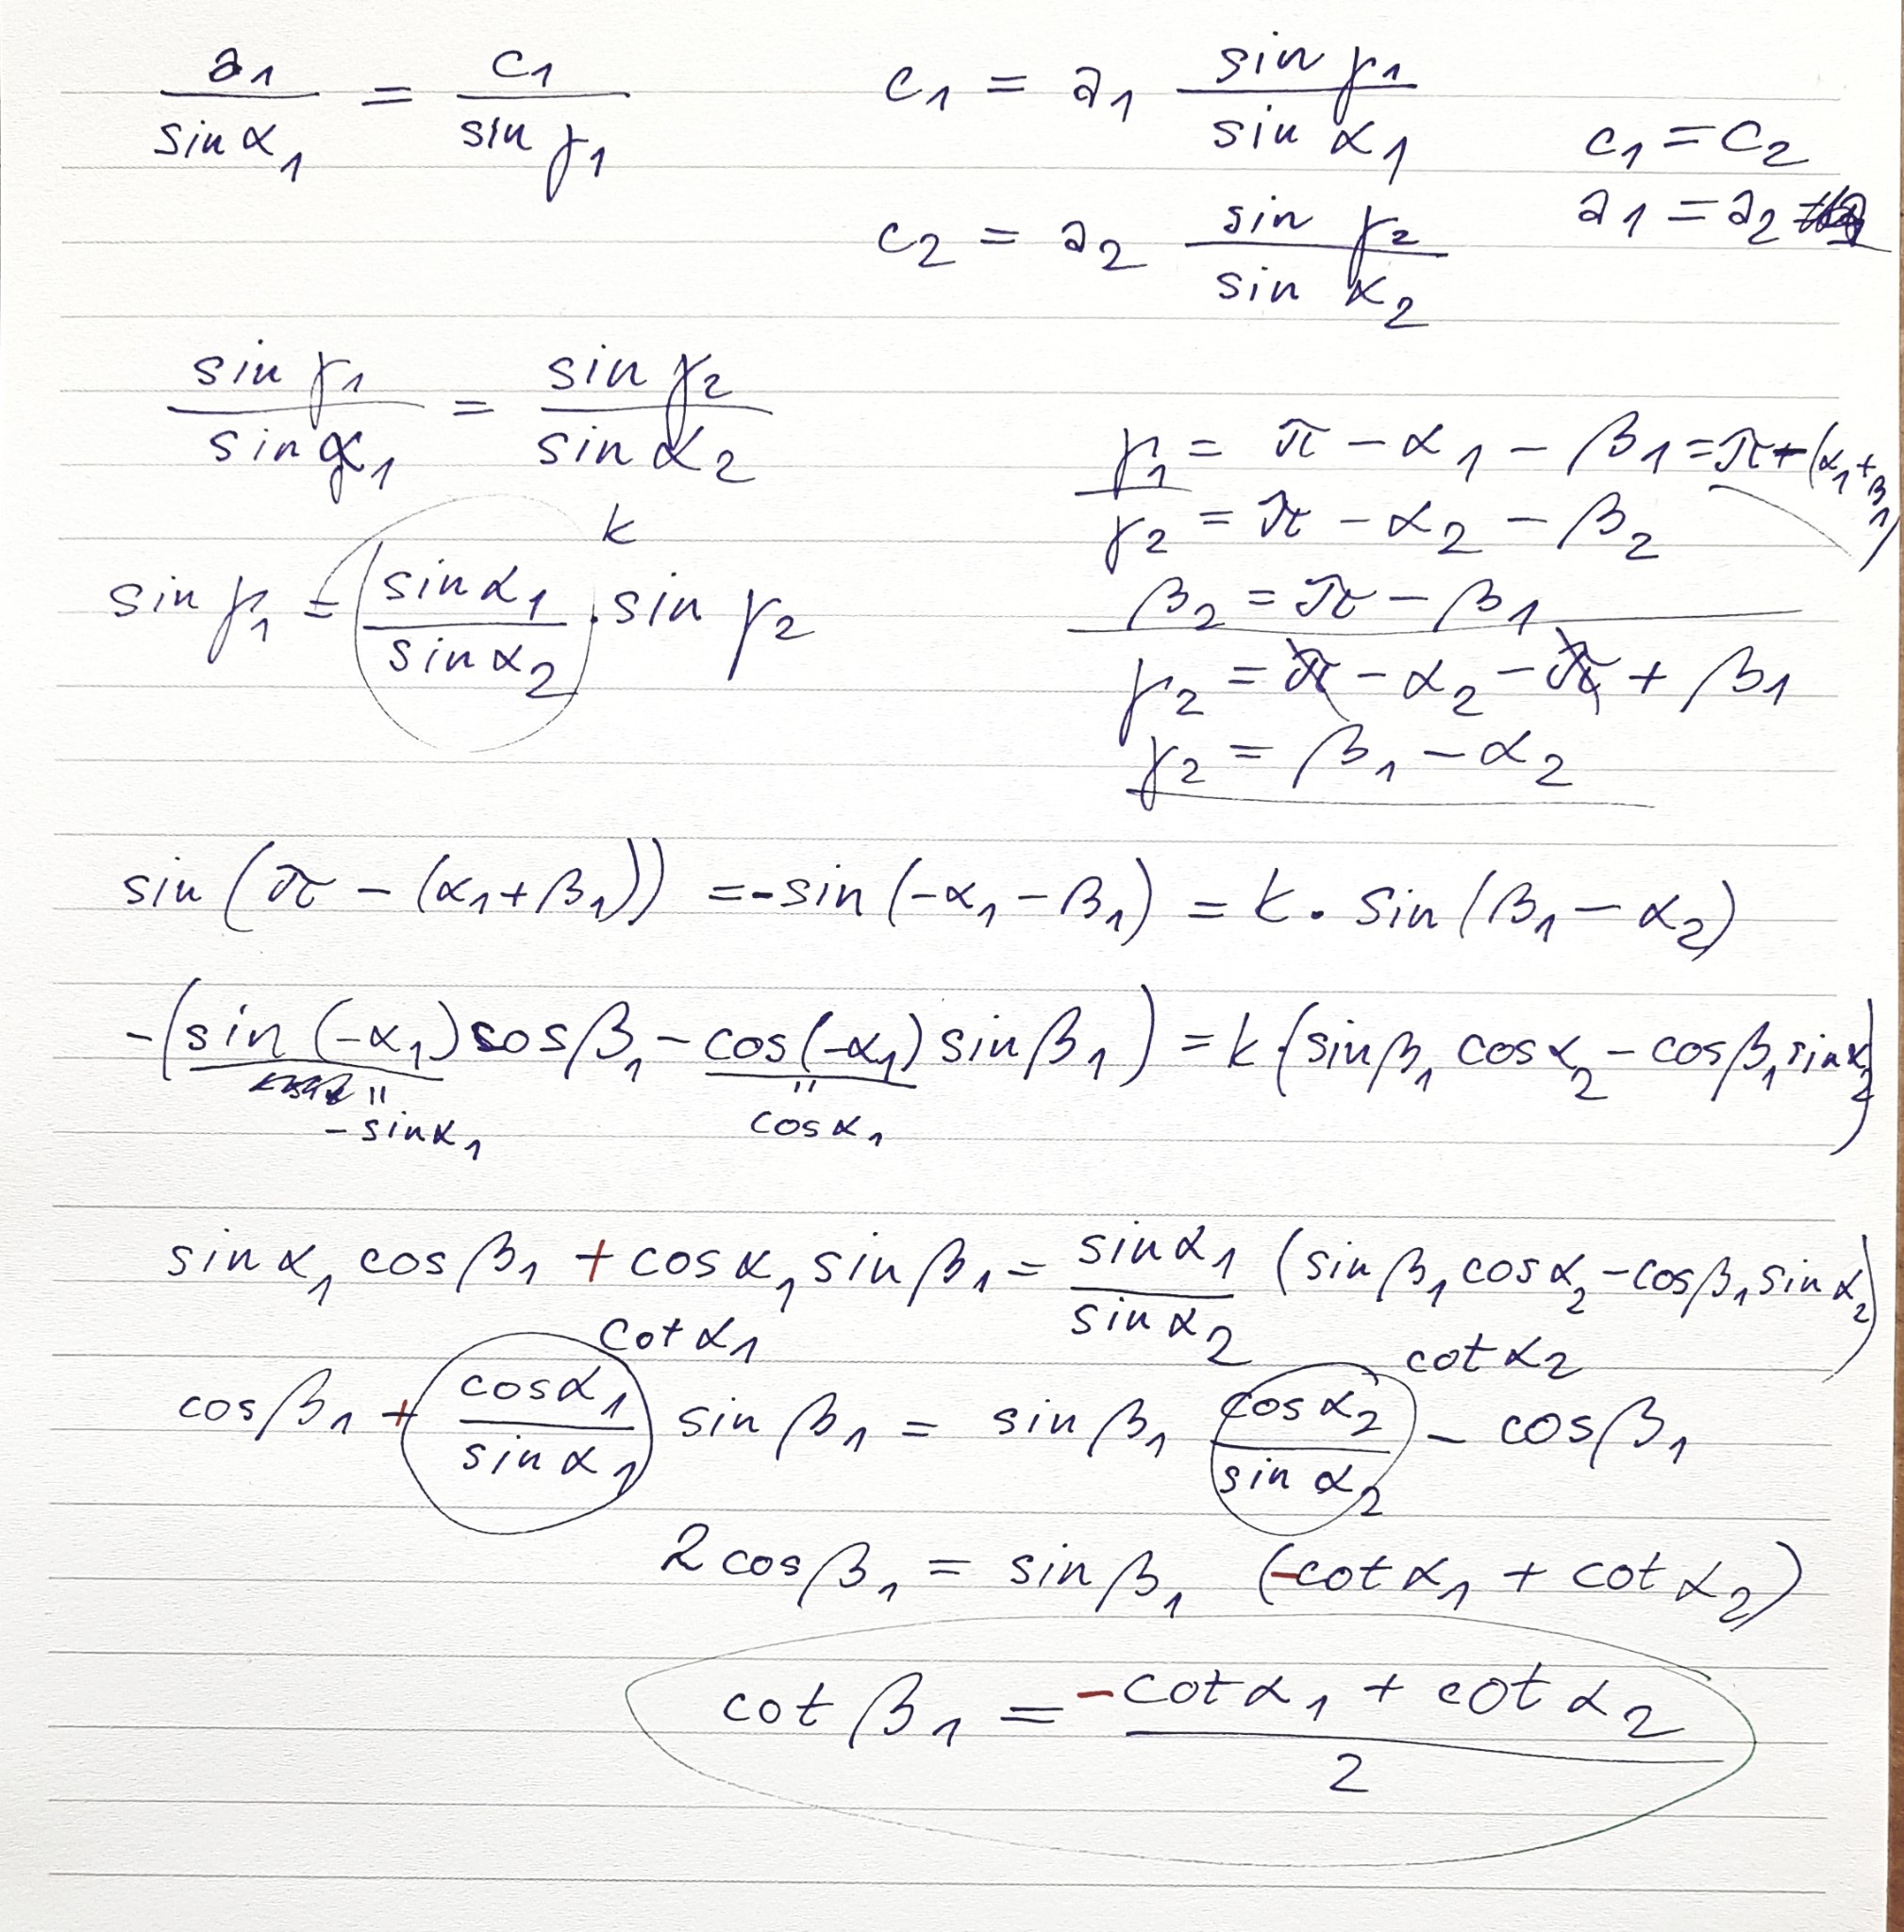 a₁/sin α₁ = c₁/sin γ₁
c₁ = a₁ sin γ₁/sin α₁
c₁ = c₂
c₂ = a₂ sin γ₂/sin α₂
a₁ = a₂
sin γ₁/sin α₁ = sin γ₂/sin α₂
γ₁ = π − α₁ − β₁ = π − (α₁ + β₁)
γ₂ = π − α₂ − β₂
k
sin γ₁ = (sin α₁/sin α₂) · sin γ₂
β₂ = π − β₁
γ₂ = π − α₂ − π + β₁
γ₂ = β₁ − α₂
sin (π − (α₁ + β₁)) = − sin (−α₁ − β₁) = k · sin (β₁ − α₂)
−(sin (−α₁) cos β₁ − cos (−α₁) sin β₁) = k · (sin β₁ cos α₂ − cos β₁ sin α₂)
" "
− sin α₁ cos α₁
sin α₁ cos β₁ + cos α₁ sin β₁ = sin α₁/sin α₂ (sin β₁ cos α₂ − cos β₁ sin α₂)
cot α₁ cot α₂
cos β₁ + cos α₁/sin α₁ sin β₁ = sin β₁ cos α₂/sin α₂ − cos β₁
2 cos β₁ = sin β₁ (−cot α₁ + cot α₂)
cot β₁ = (−cot α₁ + cot α₂)/2